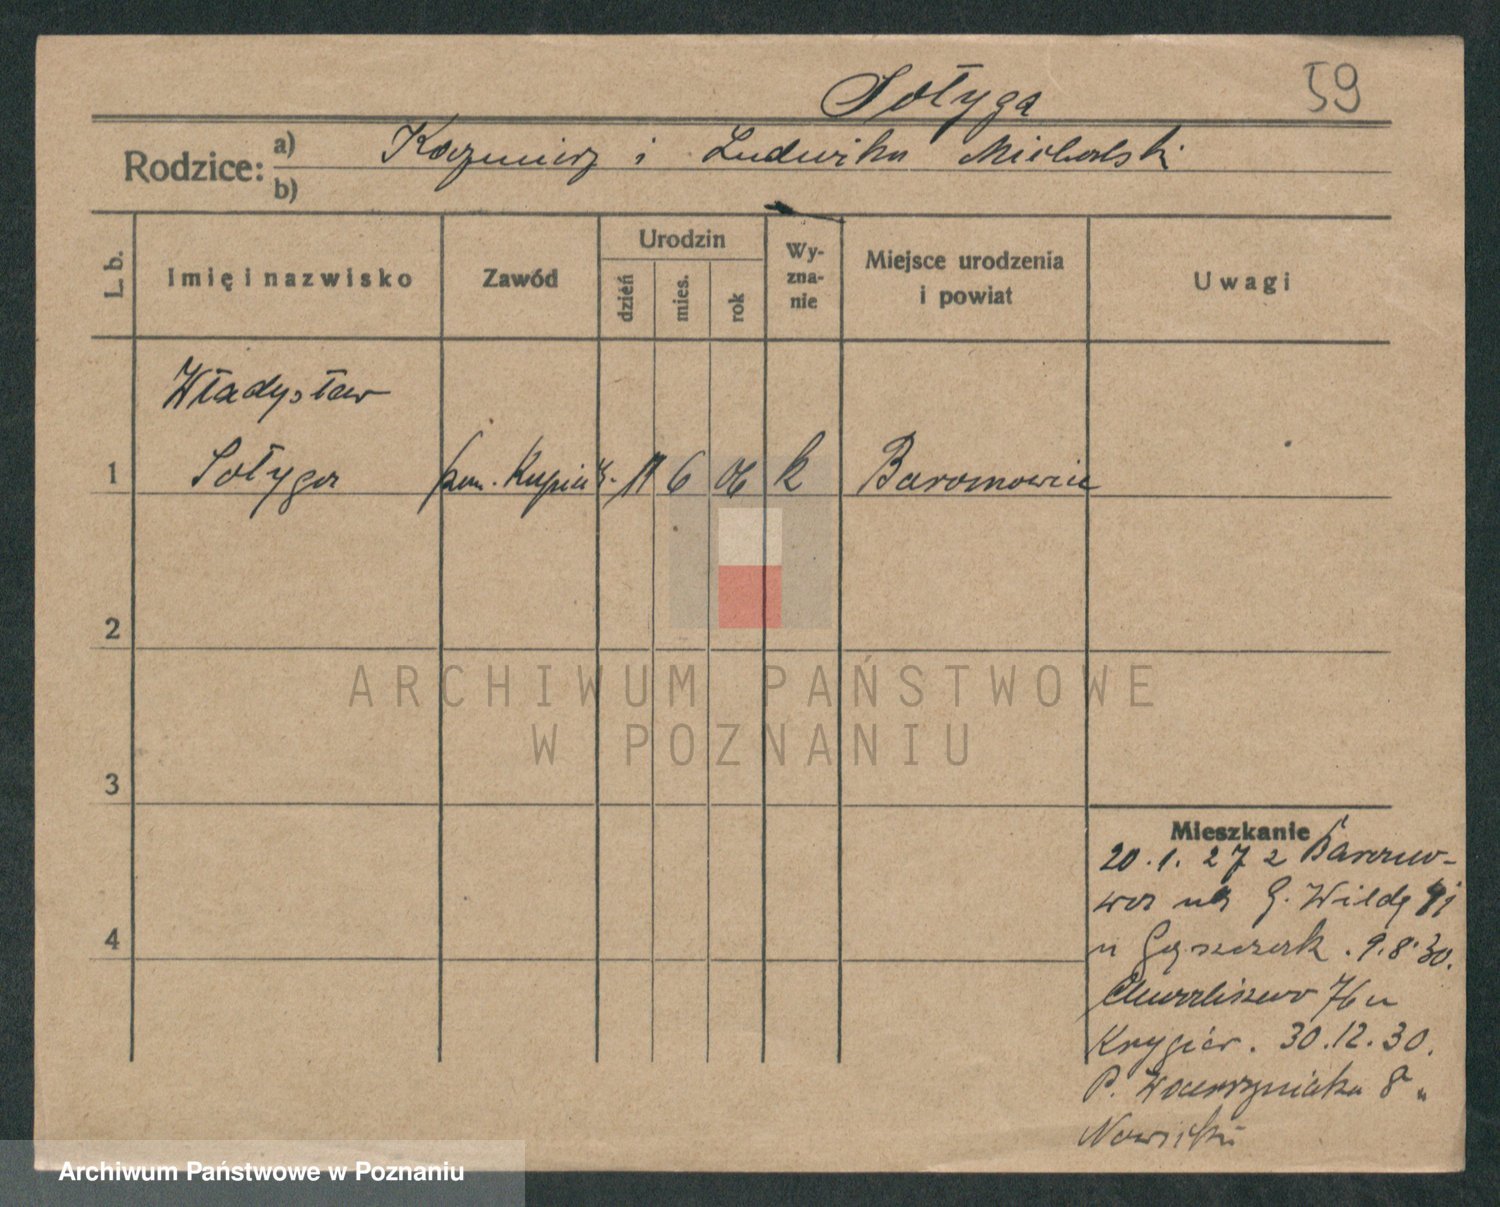 Sołyga
59
Rodzice: a) Kazmierz i Ludwika Michalski
b)
L. b.
Imię i nazwisko
Zawód
Urodzin
dzień
mies.
rok
Wy-
zna-
nie
Miejsce urodzenia
i powiat
Uwagi
Władysław
1 Sołyga pom. Kupiec. 11 6 06 k Baranowice
2
3
4
Mieszkanie
20.1.27 z
wa na G. Wildę
u 9.8.30.
Chwaliszewo 76 u
Krygier. 30.12.30.
P. Wawrzyniaka 8 u
Nowicki
ARCHIWUM PAŃSTWOWE
W POZNANIU
Archiwum Państwowe w Poznaniu